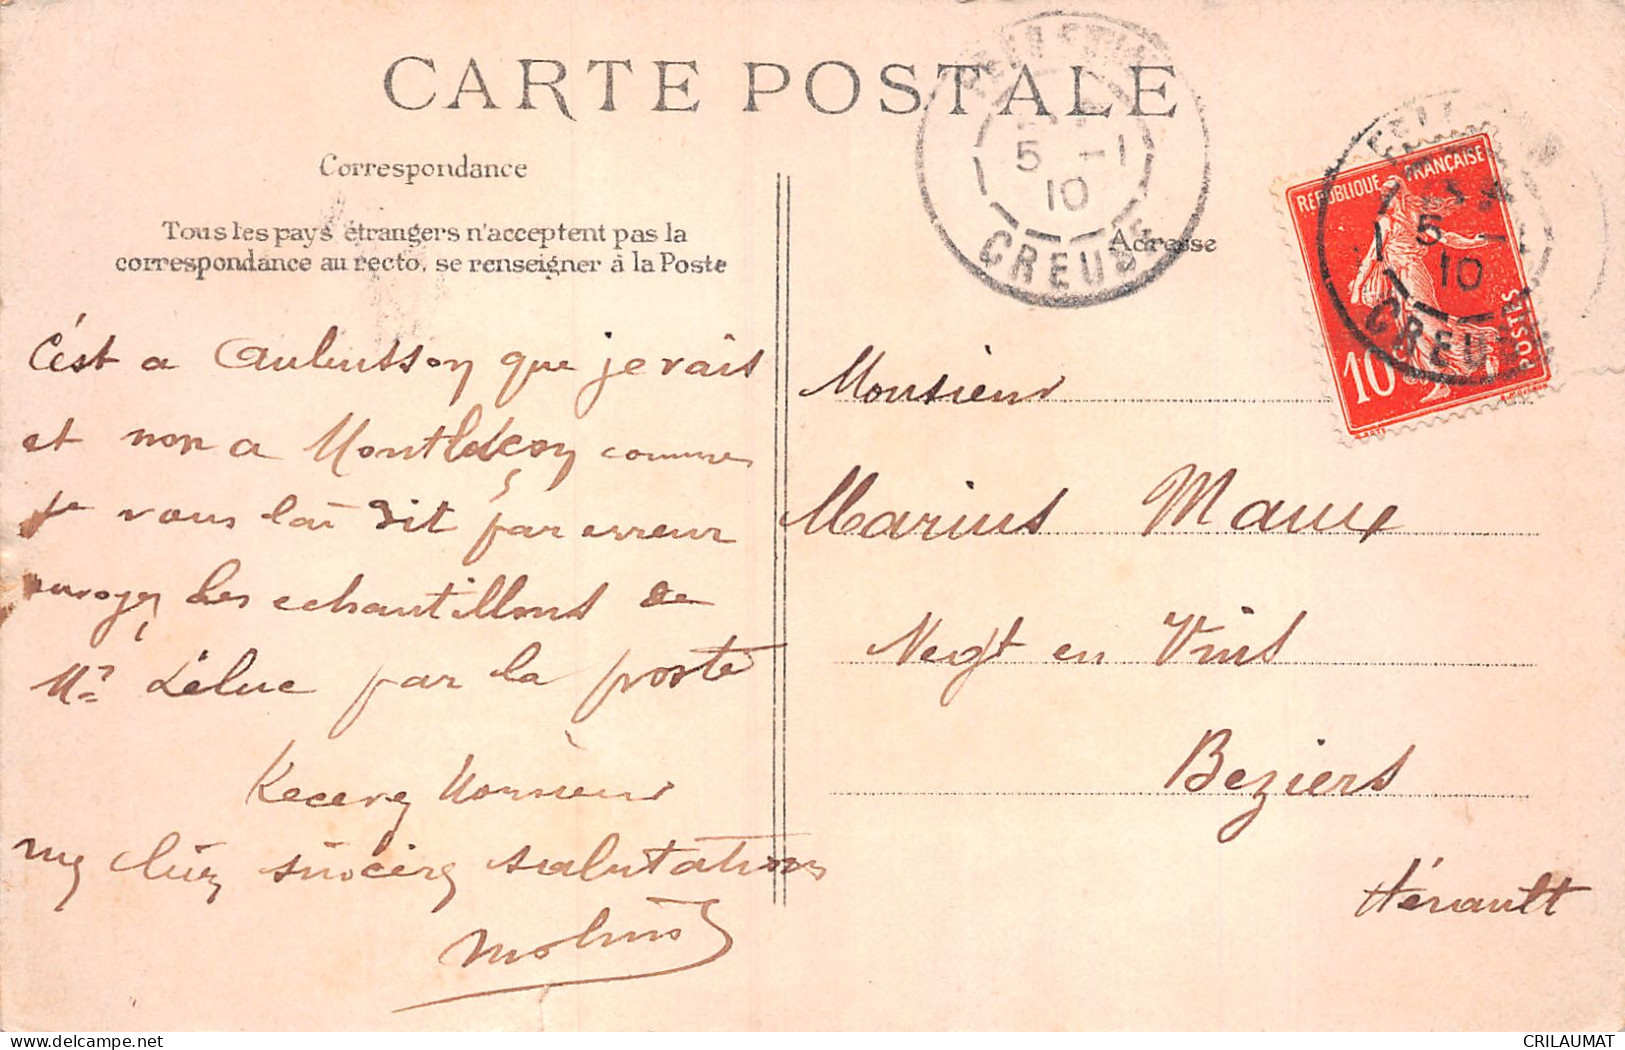 CARTE POSTALE
Correspondance
Tous les pays étrangers n'acceptent pas la
correspondance au recto, se renseigner à la Poste
C'est a Aubusson que je vais
et non a Montluçon comme
je vous lai dit par erreur
envoyez les echantillons de
Mr Leluc par la poste
Recevez Monsieur
mes sincères salutations
5 -1
10
CREUSE
Adresse
REPUBLIQUE FRANÇAISE
POSTES
10
5 -1
10
CREUSE
Monsieur
Marius Maux
Negt en Vins
Beziers
Hérault
CRILAUMAT